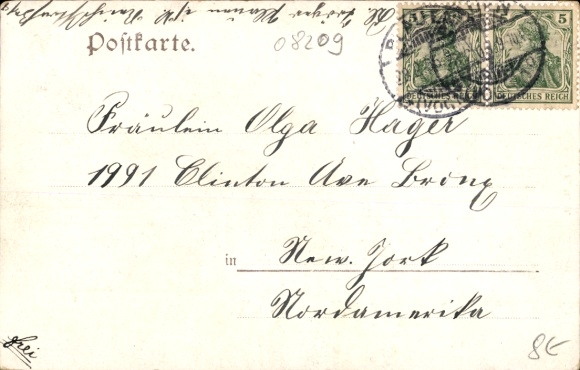 Postkarte.
08209
5
5
DEUTSCHES REICH
DEUTSCHES REICH
Fräulein Olga Hager
1991 Clinton Ave Bronx
in New. York
Nordamerika
frei
8€